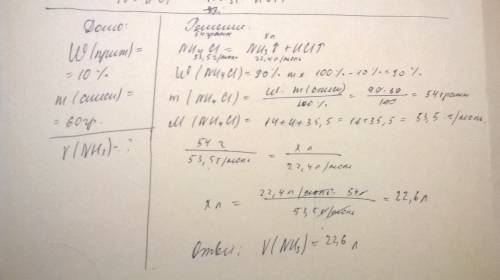 Дано:
W(прим)=
=10%
m(смеси)=
=60гр.
V(NH3)-?
Решение:
54грамм x л
NH4Cl = NH3↑ + HCl↑
53,5г/моль 22,4л/моль
W(NH4Cl)=90% т.к 100%-10%=90%
m(NH4Cl) = W·m(смеси)/100% = 90·60/100 = 54грамм
M(NH4Cl) = 14+4+35,5 = 18+35,5 = 53,5 г/моль
54г/53,5г/моль = xл/22,4л/моль
xл = 22,4л/моль·54г/53,5г/моль = 22,6л
Ответ: V(NH3)=22,6 л